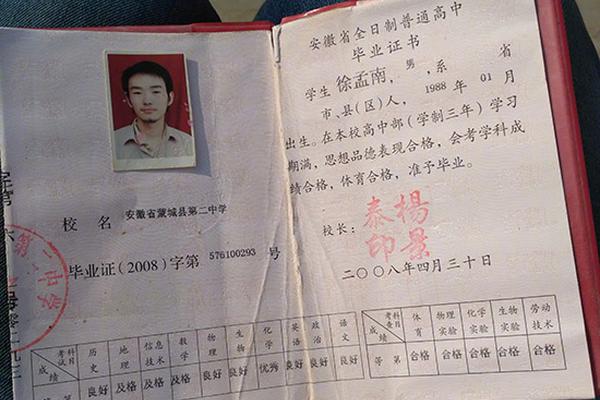 校名 安徽省蒙城县第二中学
毕业证(2008)字第 576100293 号
第二中学
考试科目 历史 地理 信息技术 数学 物理 生物 化学 英语 政治 语文
成绩 良好 及格 及格 及格 良好 良好 优秀 良好 良好 良好
安徽省全日制普通高中
毕业证书
学生 徐孟南，男，系 省
市、县(区)人，1988 年 01 月
出生。在本校高中部(学制三年)学习
期满，思想品德表现合格，会考学科成
绩合格，体育合格，准予毕业。
校长：
楊景泰印
二〇〇八年四月三十日
考查科目 体育 物理实验 化学实验 生物实验 劳动技术
等第 合格 合格 合格 合格 合格